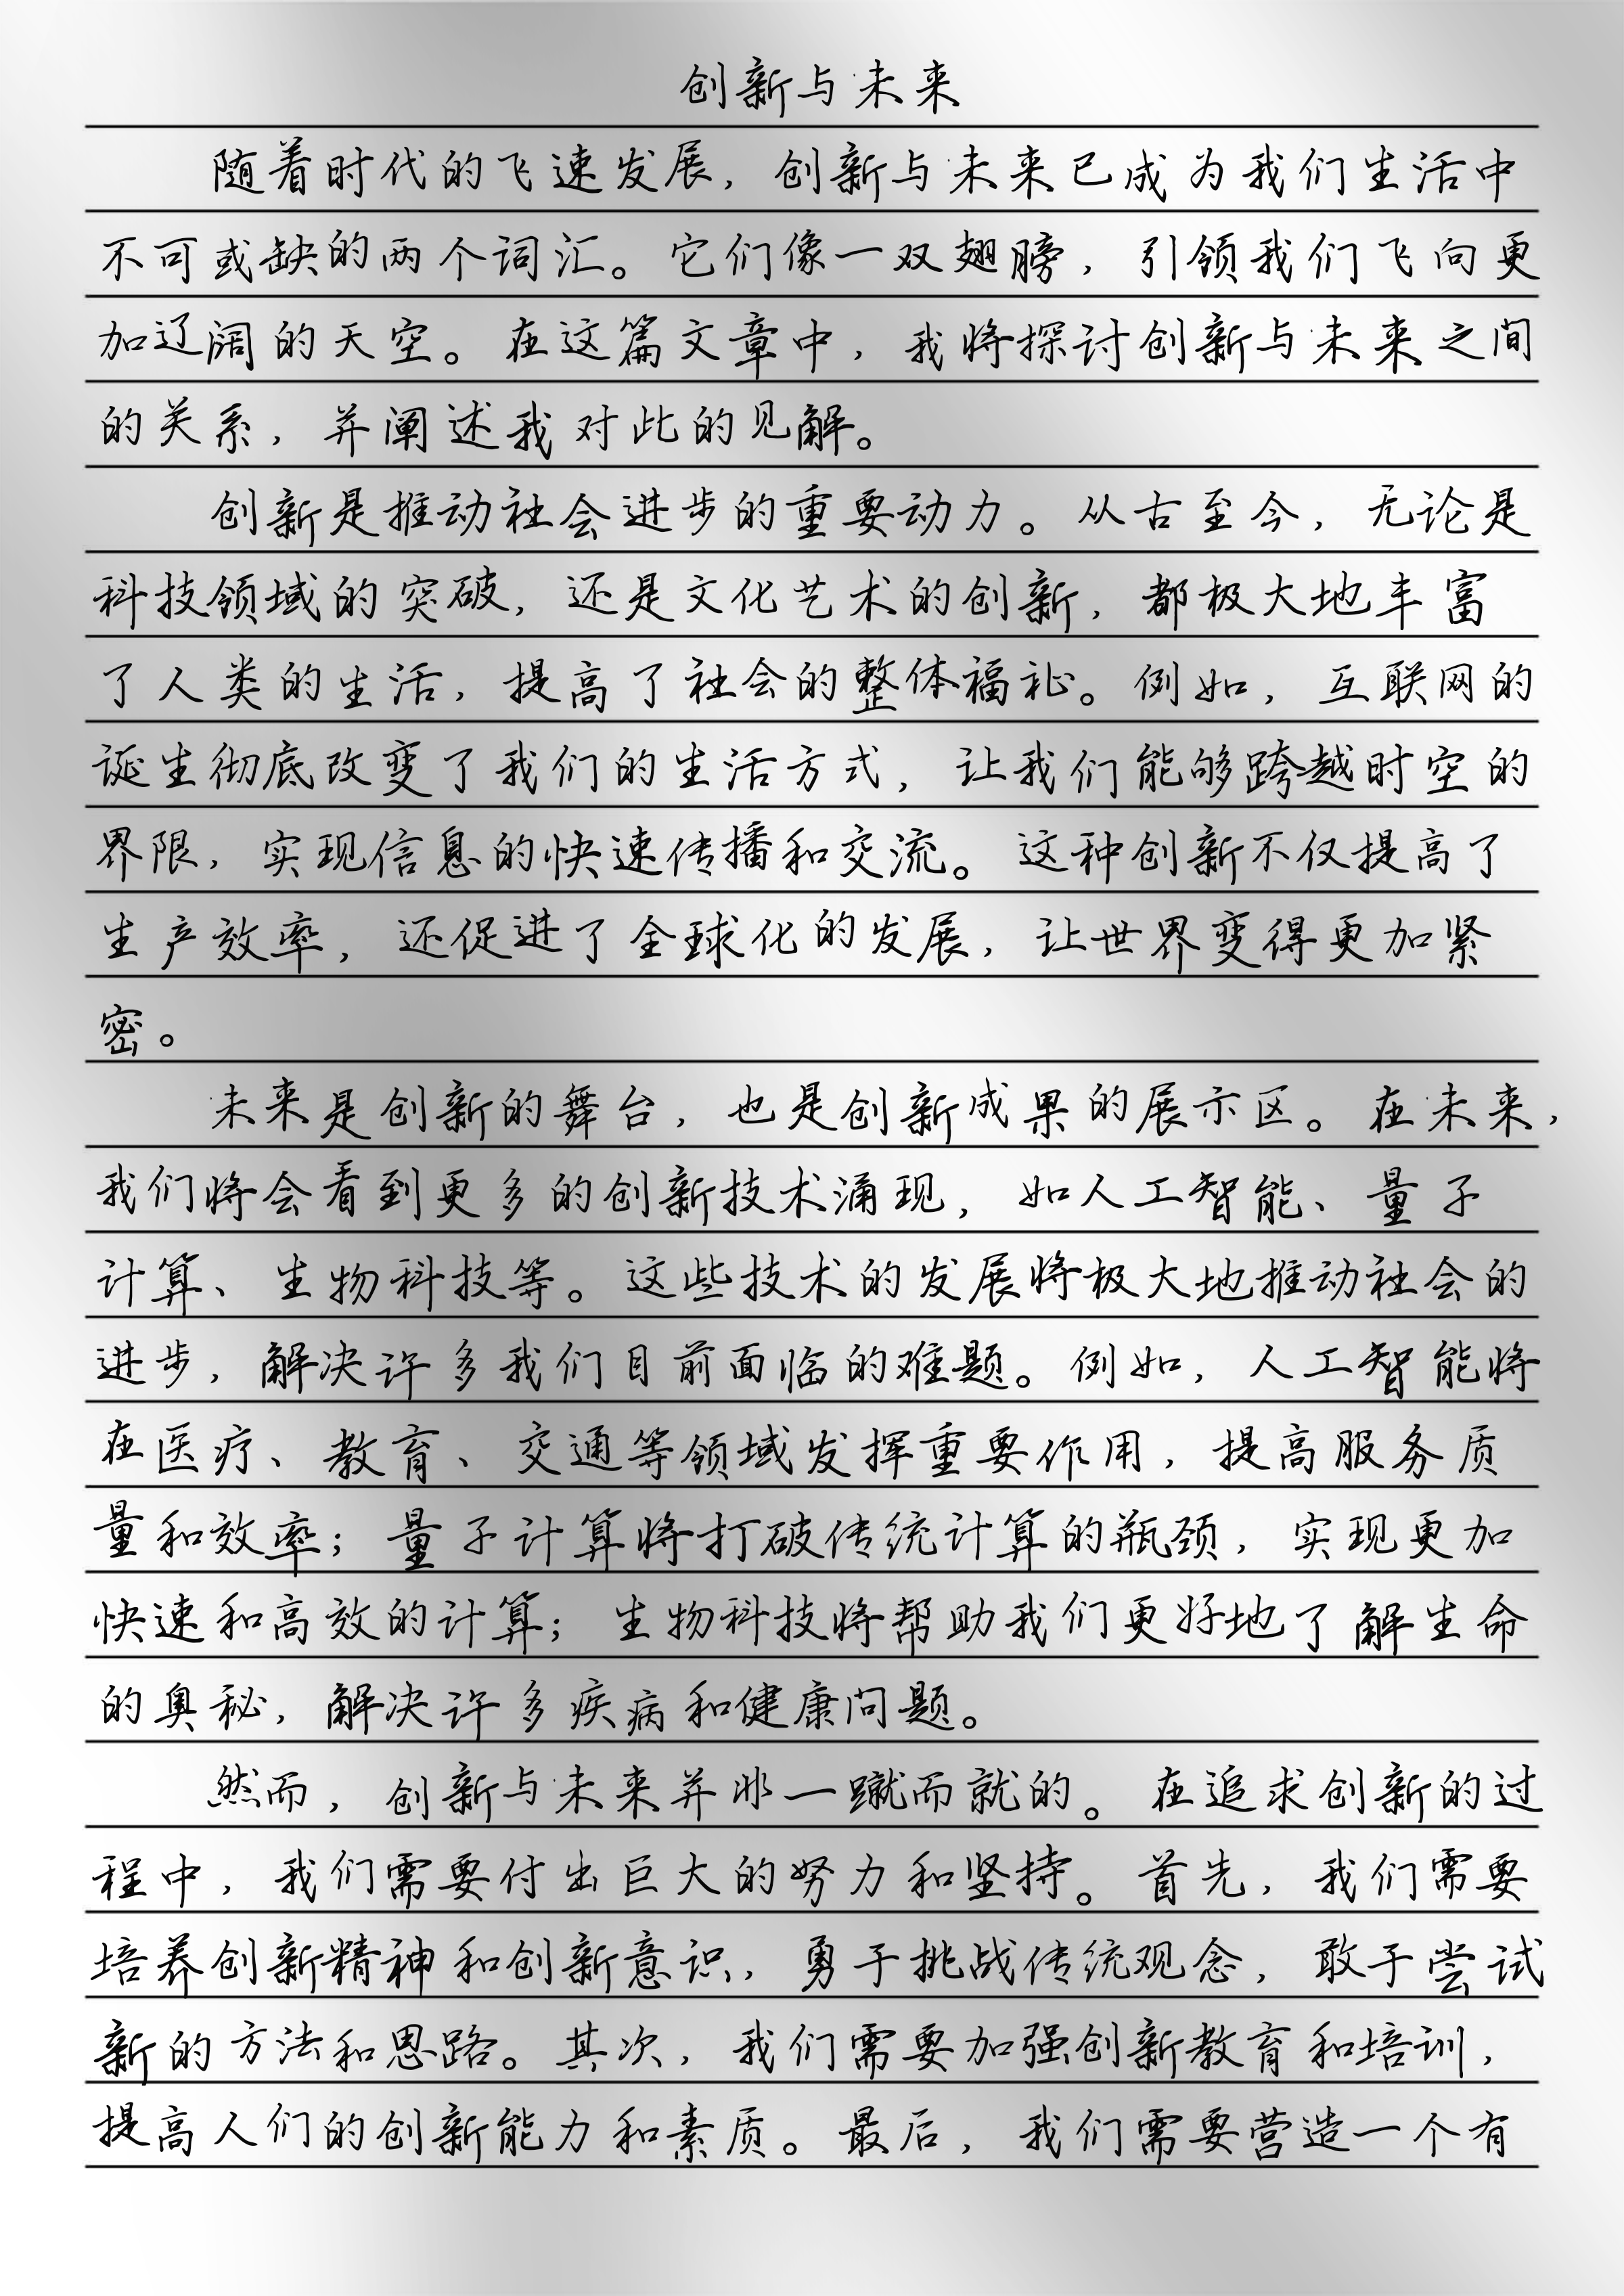 创新与未来
随着时代的飞速发展，创新与未来已成为我们生活中
不可或缺的两个词汇。它们像一双翅膀，引领我们飞向更
加辽阔的天空。在这篇文章中，我将探讨创新与未来之间
的关系，并阐述我对此的见解。
创新是推动社会进步的重要动力。从古至今，无论是
科技领域的突破，还是文化艺术的创新，都极大地丰富
了人类的生活，提高了社会的整体福祉。例如，互联网的
诞生彻底改变了我们的生活方式，让我们能够跨越时空的
界限，实现信息的快速传播和交流。这种创新不仅提高了
生产效率，还促进了全球化的发展，让世界变得更加紧
密。
未来是创新的舞台，也是创新成果的展示区。在未来，
我们将会看到更多的创新技术涌现，如人工智能、量子
计算、生物科技等。这些技术的发展将极大地推动社会的
进步，解决许多我们目前面临的难题。例如，人工智能将
在医疗、教育、交通等领域发挥重要作用，提高服务质
量和效率；量子计算将打破传统计算的瓶颈，实现更加
快速和高效的计算；生物科技将帮助我们更好地了解生命
的奥秘，解决许多疾病和健康问题。
然而，创新与未来并非一蹴而就的。在追求创新的过
程中，我们需要付出巨大的努力和坚持。首先，我们需要
培养创新精神和创新意识，勇于挑战传统观念，敢于尝试
新的方法和思路。其次，我们需要加强创新教育和培训，
提高人们的创新能力和素质。最后，我们需要营造一个有